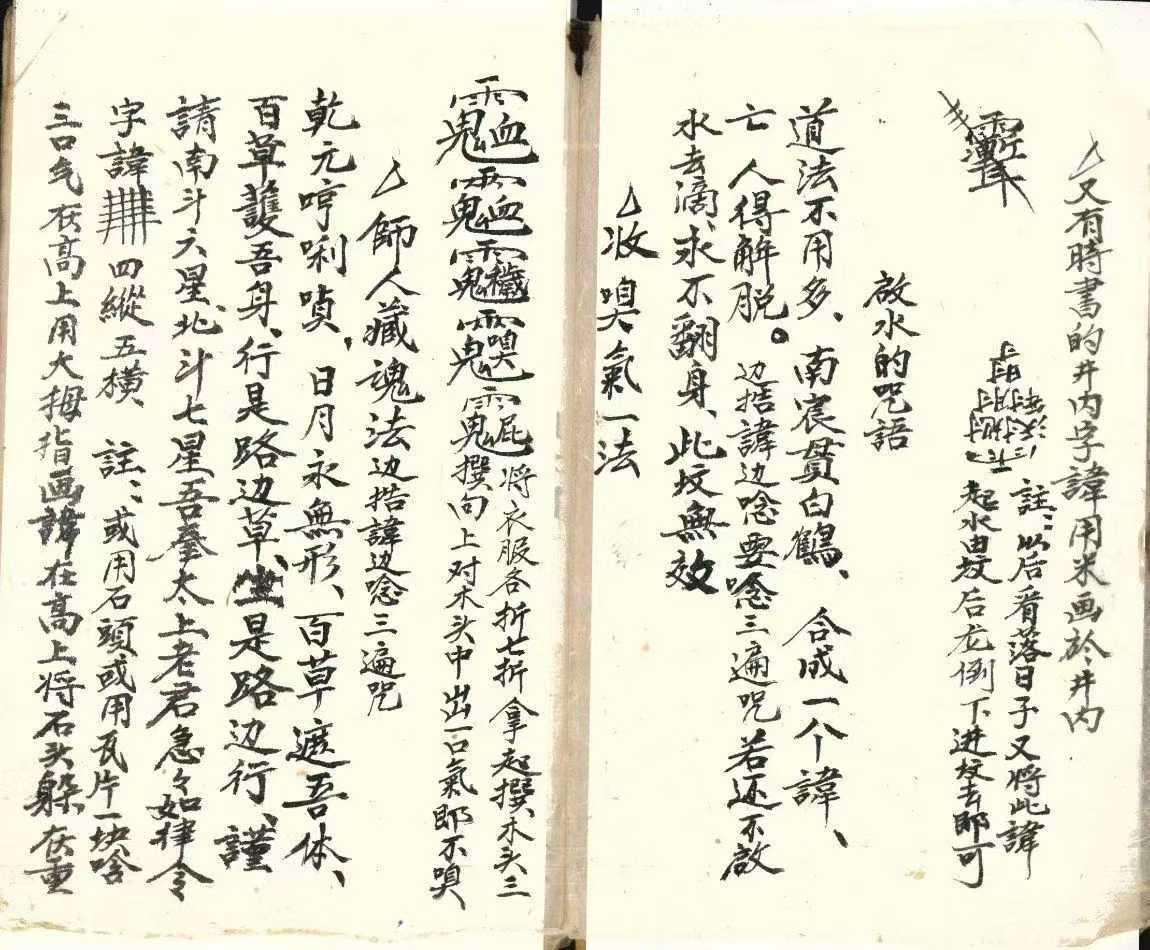 又有時書的井内字諱用米画於井内
註:以后看落日子又將此諱
起水由坟后龙倒下进坟去即可
啟水的咒語
道法不用多、南宸貫白鶴、合成一个諱、
亡人得解脱。边掐諱边唸要唸三遍咒若还不啟
水去滴、永不翻身、此坟無效
收嗅氣一法
將衣服各折七折拿起撰木头三
撰句上对木头中出一口氣即不嗅
師人藏魂法边掐諱边唸三遍咒
乾元哼唎嗩、日月永無形、百草遮吾体、
百草護吾身、行是路边草、坐是路边行、謹
請南斗六星、北斗七星吾奉太上老君急々如律令
字諱 四縱五横 註:或用石頭或用瓦片一块唅
三口气在高上用大拇指画諱在高上将石头躲在重